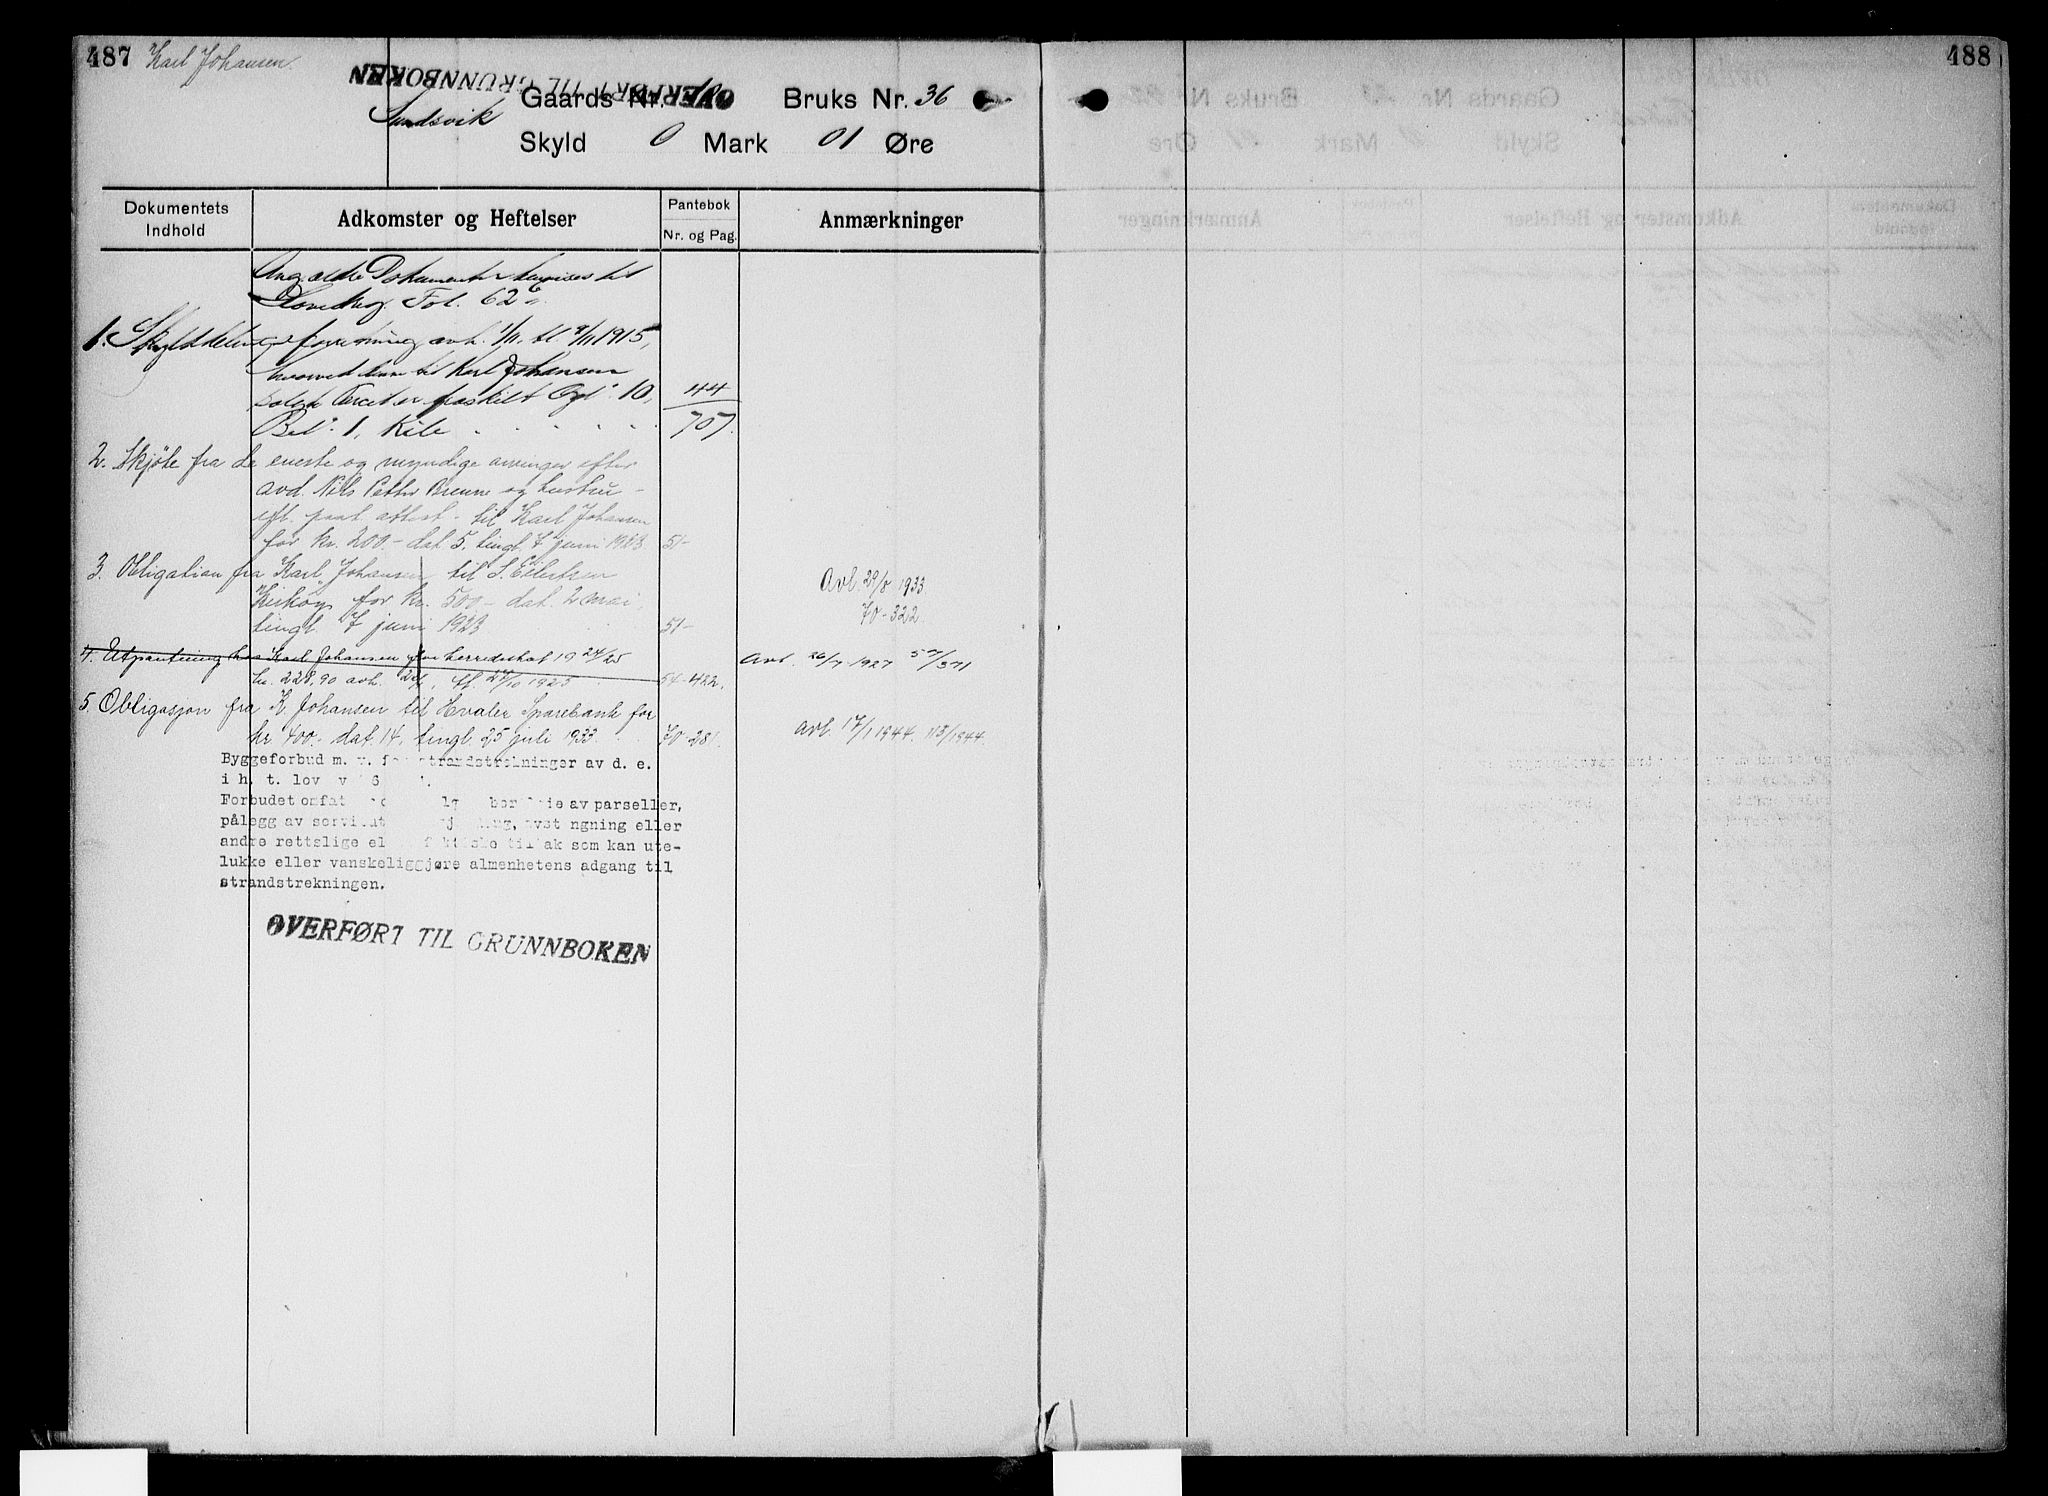 487 Karl Johansen. 488
OVERFØRT TIL GRUNNBOKEN
Sundsvik Gaards Nr. Bruks Nr. 36
Skyld 0 Mark 01 Øre
Dokumentets Indhold
Adkomster og Heftelser
Pantebok
Nr. og Pag.
Anmærkninger
Ang. ældre Dokumenter henvises til
Fol. 62
1. Skylddelingsforretning avh. 1/11, tl. 9/11 1915,
hvorved den til Karl Johansen
solgte Parcel er fraskilt Gd. 10, 44
Br. 1, Kile . . . . . 707.
2. Skjøte fra de eneste og myndige arvinger efter
avd. Nils Petter og hustru -
eft. paat. attest - til Karl Johansen
for kr. 200.- dat. 5, tingl. 7 juni 1923 51-
3. Obligation fra Karl Johansen til S. Eilertsen
Kirkøy for kr. 500.- dat. 2 mai, Avl. 29/8 1933.
tingl. 7 juni 1923 51- 70-322.
4. Utpantning hos Karl Johansen for herredsskat 1924/25 Avl. 26/7 1927 57/371
kr. 228,90 avh. tl. 1925 54-422.
5. Obligasjon fra K. Johansen til Hvaler Sparebank for
kr. 400.- dat. 14, tingl. 25 juli 1933. 70-281. Avl. 17/1 1944. 113/1944.
Byggeforbud m. v. for strandstrekninger av d. e.
i h. t. lov
Forbudet omfat bor av parseller,
pålegg av servitut eller
andre rettslige el tiltak som kan ute-
lukke eller vanskeliggjøre almenhetens adgang til
strandstrekningen.
OVERFØRT TIL GRUNNBOKEN